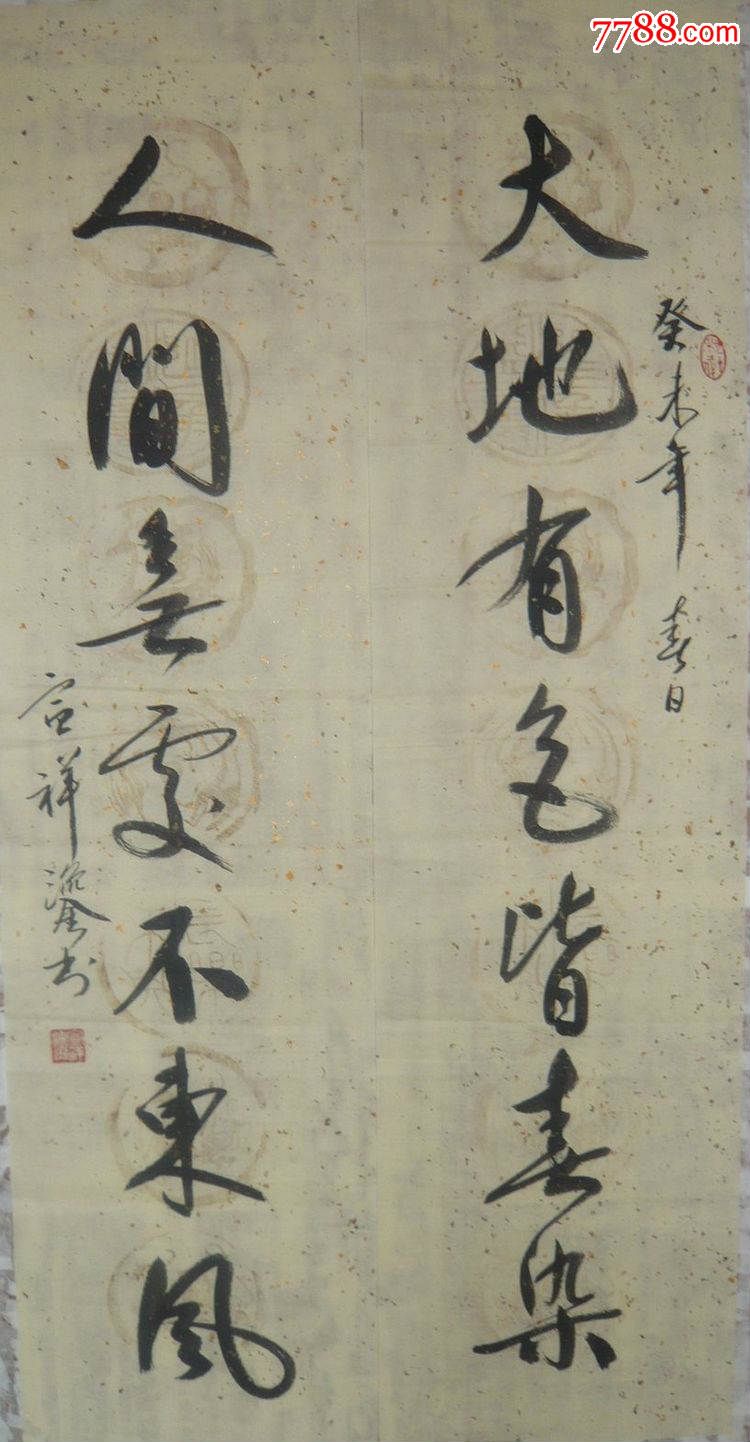 7788.com
癸未年 春日
大地有色皆春染
人間無處不東風